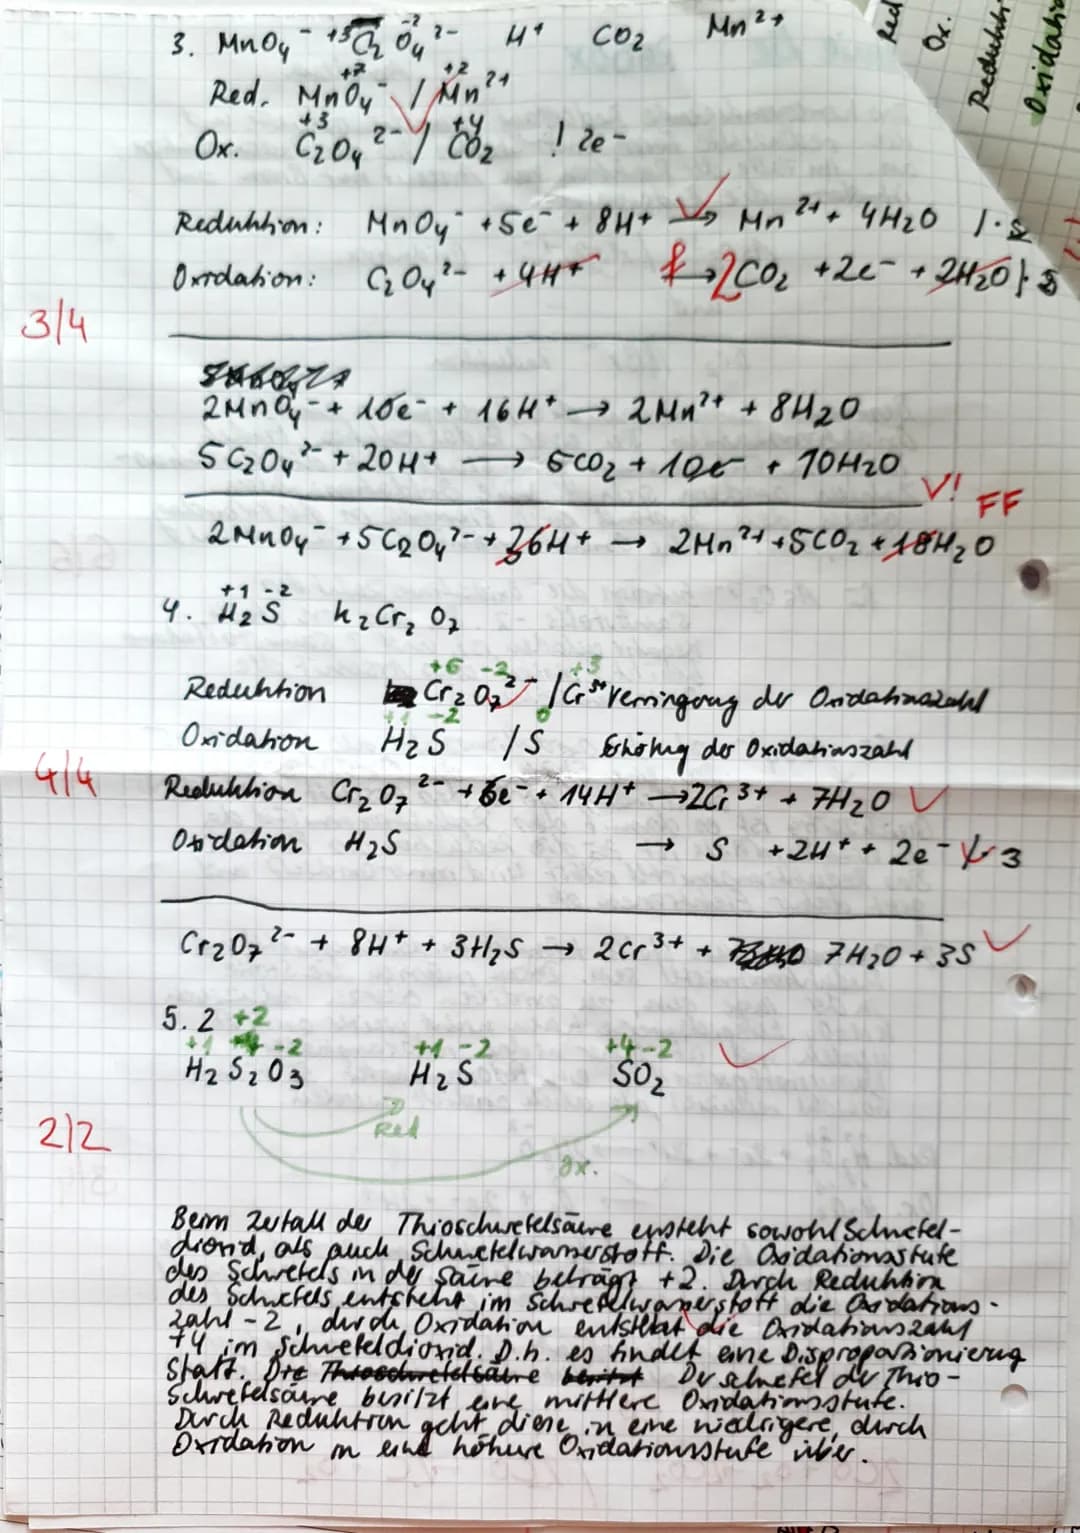 3. MnO₄⁻ +3 C₂ -2 O₄²⁻ H⁺ CO₂ Mn²⁺
Red
Ox.
Redukti
Oxidatio
+7 +2
Red. MnO₄⁻ / Mn²⁺
+3 +4
Ox. C₂O₄²⁻ / CO₂ ! 2e⁻
Reduktion: MnO₄⁻ + 5e⁻ + 8H⁺ → Mn²⁺ + 4H₂O | · 2
Oxidation: C₂O₄²⁻ + 4H⁺ → 2CO₂ + 2e⁻ + 2H₂O } · 5
3/4
2MnO₄⁻ + 10e⁻ + 16H⁺ → 2Mn²⁺ + 8H₂O
5C₂O₄²⁻ + 20H⁺ → 5CO₂ + 10e⁻ + 10H₂O
√! FF
2MnO₄⁻ + 5C₂O₄²⁻ + 36H⁺ → 2Mn²⁺ + 5CO₂ + 18H₂O
+1 -2
4. H₂S K₂Cr₂O₇
+6 -2 +3
Reduktion Cr₂O₇²⁻ / Cr³⁺ Verringerung der Oxidationszahl
+1 -2 0
Oxidation H₂S / S Erhöhung der Oxidationszahl
4/4
Reduktion Cr₂O₇²⁻ + 6e⁻ + 14H⁺ → 2Cr³⁺ + 7H₂O
Oxidation H₂S → S + 2H⁺ + 2e⁻ | · 3
Cr₂O₇²⁻ + 8H⁺ + 3H₂S → 2Cr³⁺ + 7H₂O + 3S
5. 2 +2
+1 +4 -2 +1 -2 +4 -2
H₂S₂O₃ H₂S SO₂
Red
Ox.
2/2
Beim Zerfall der Thioschwefelsäure ensteht sowohl Schwefel-
dioxid, als auch Schwefelwasserstoff. Die Oxidationsstufe
des Schwefels in der Säure beträgt +2. Durch Reduktion
des Schwefels entsteht im Schwefelwasserstoff die Oxidations-
zahl -2, durch Oxidation entsteht die Oxidationszahl
+4 im Schwefeldioxid. D.h. es findet eine Disproportionierung
statt. Die Thioschwefelsäure besitzt Der Schwefel der Thio-
schwefelsäure besitzt eine mittlere Oxidationsstufe.
Durch Reduktion geht diese in eine niedrigere, durch
Oxidation in eine höhere Oxidationsstufe über.